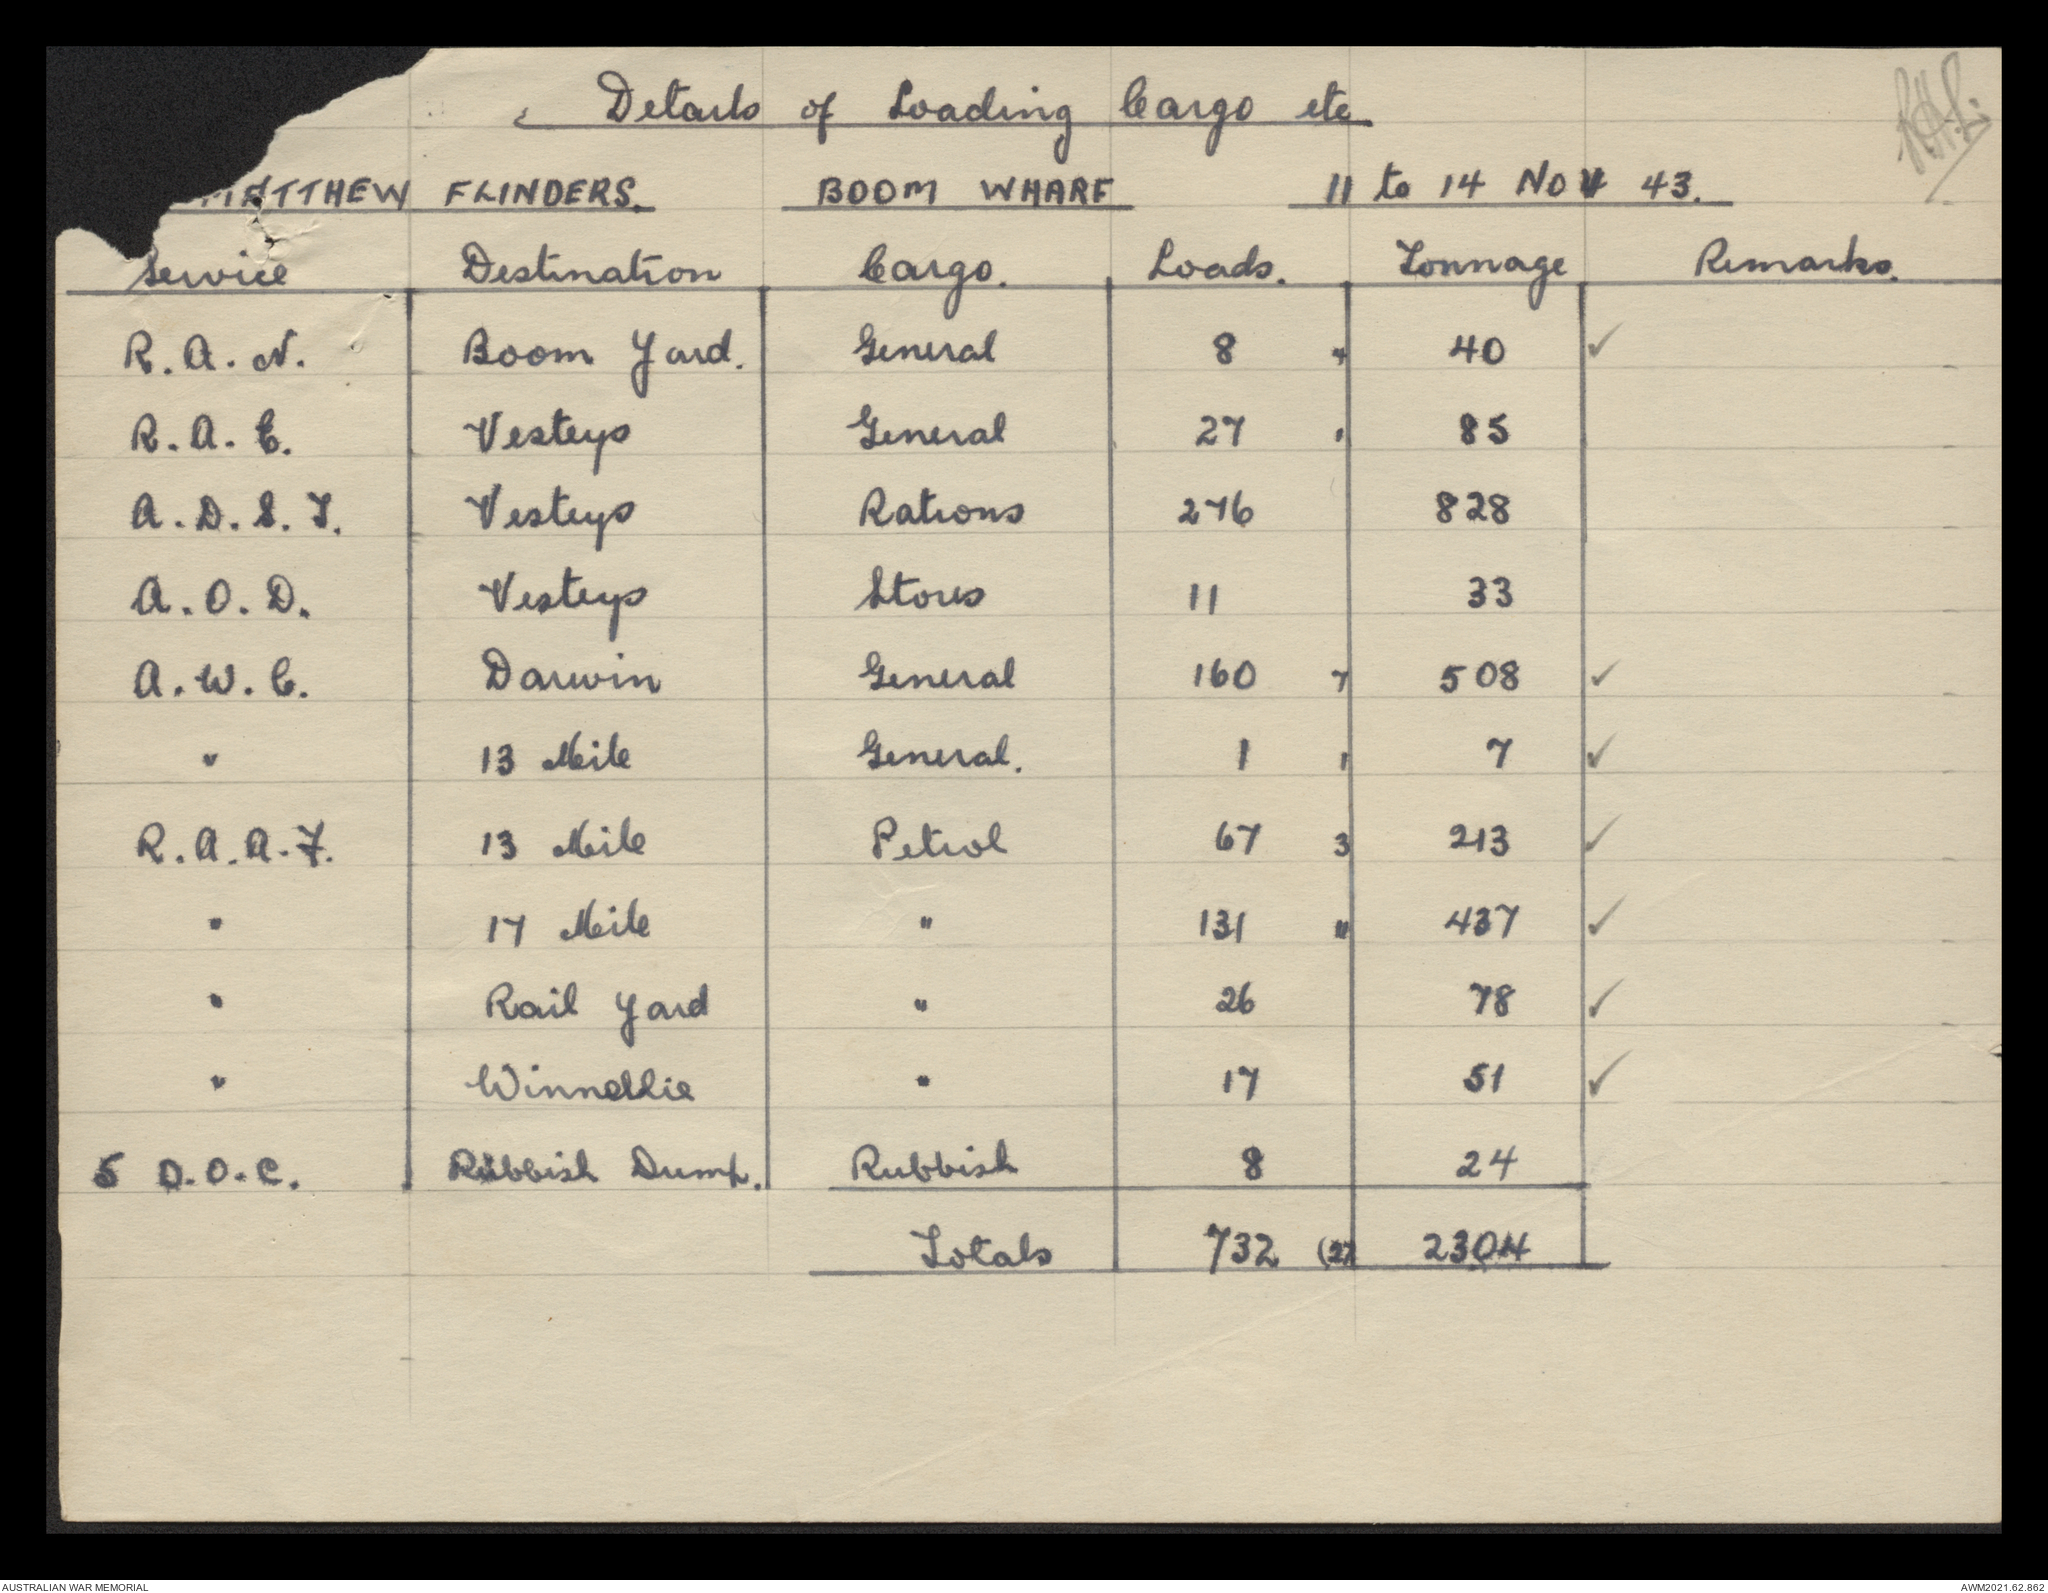 Details of Loading Cargo etc
MATTHEW FLINDERS. BOOM WHARF 11 to 14 NOV 43.
Service Destination Cargo. Loads. Tonnage Remarks.
R.A.N. Boom Yard. General 8 4 40 ✓
R.A.E. Vesteys General 27 1 85
A.D.S.T. Vesteys Rations 276 828
A.O.D. Vesteys Stores 11 33
A.W.C. Darwin General 160 7 508 ✓
" 13 Mile General. 1 1 7 ✓
R.A.A.F. 13 Mile Petrol 67 3 213 ✓
" 17 Mile " 131 11 437 ✓
" Rail Yard " 26 78 ✓
" Winnellie " 17 51 ✓
5 D.O.C. Rubbish Dump. Rubbish 8 24
Totals 732 (27) 2304
AUSTRALIAN WAR MEMORIAL AWM2021.62.862